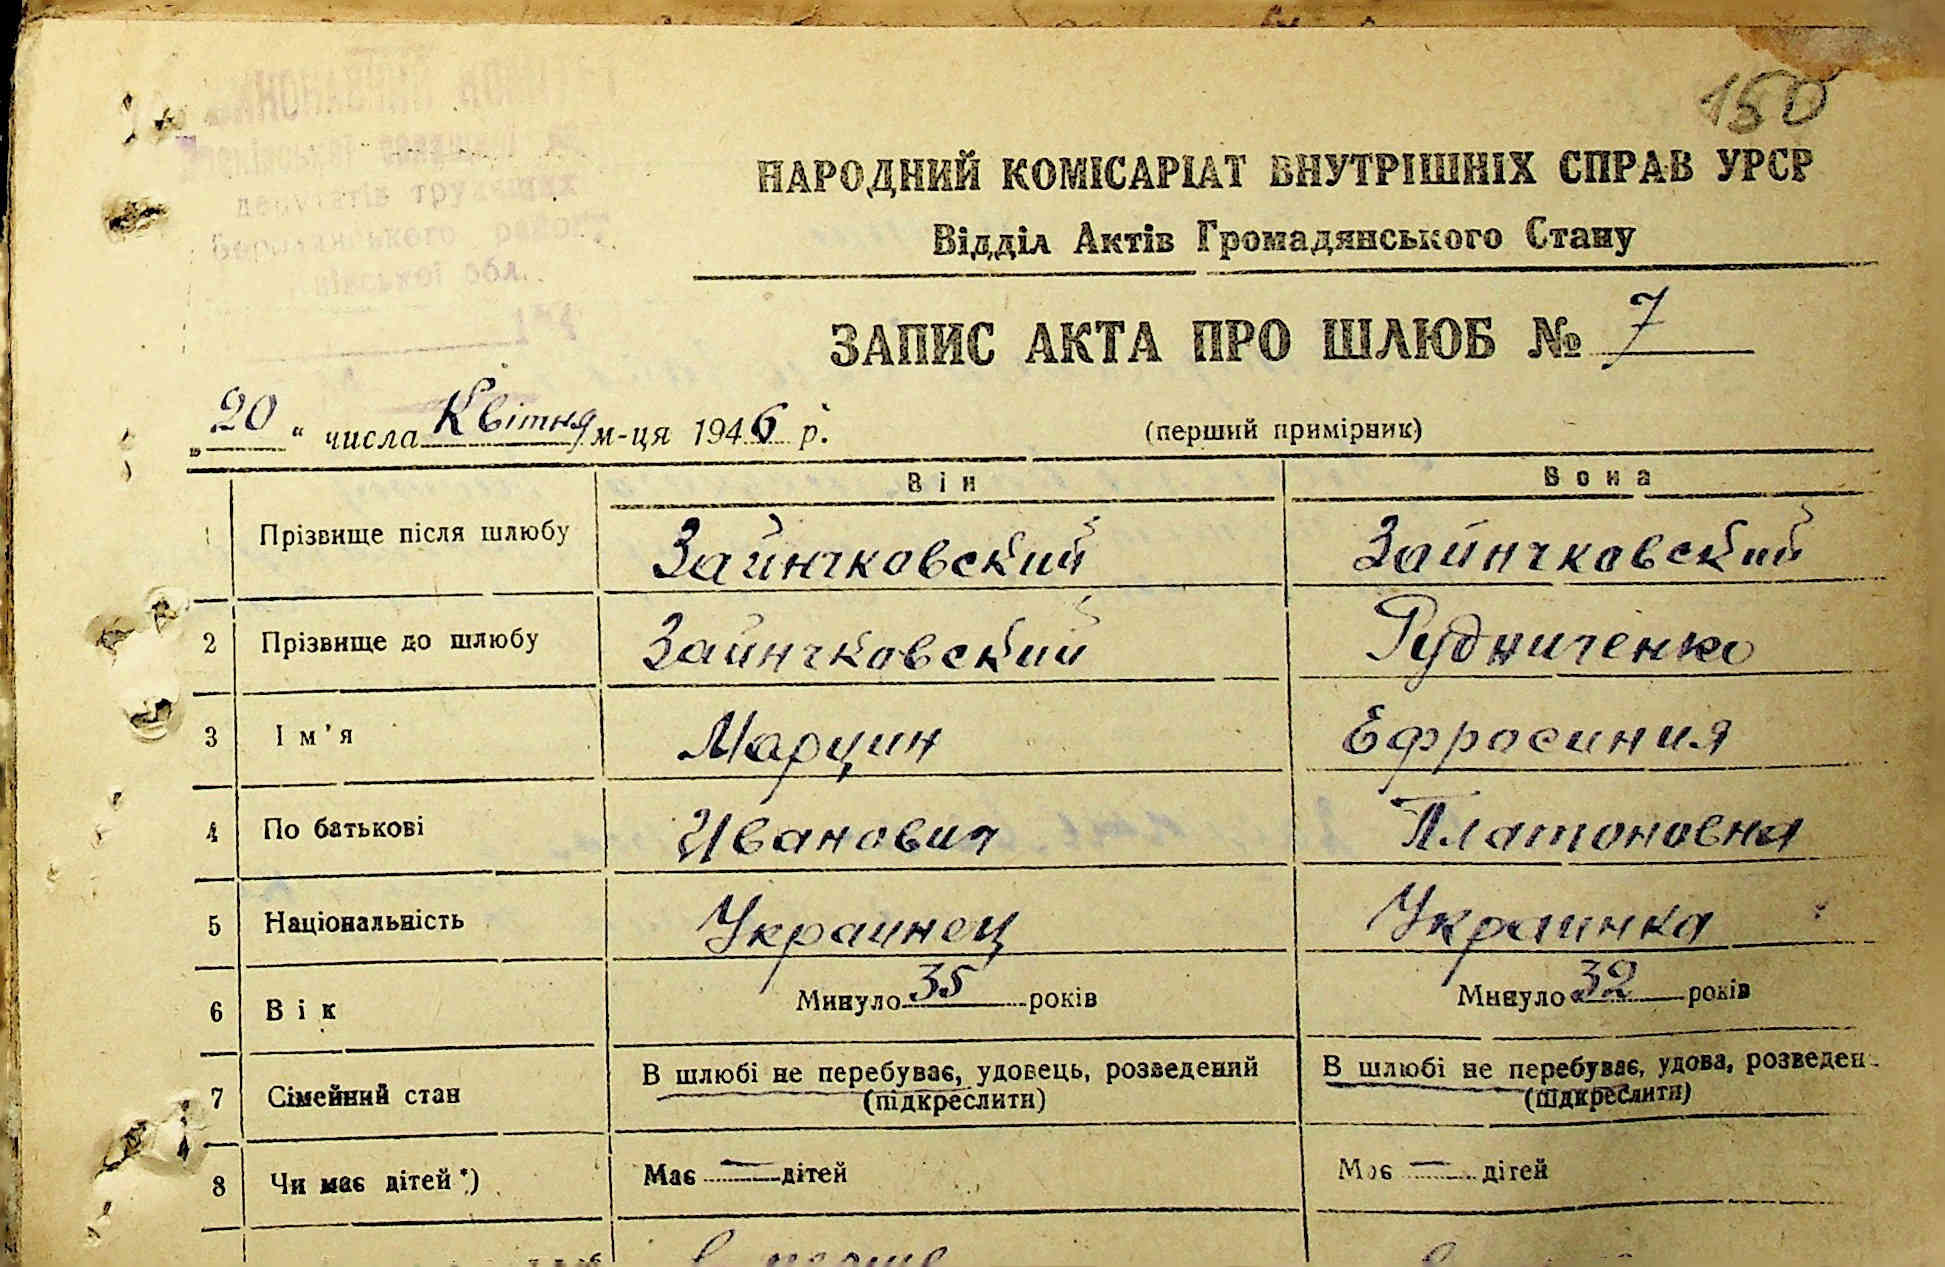 150
НАРОДНИЙ КОМІСАРІАТ ВНУТРІШНІХ СПРАВ УРСР
Відділ Актів Громадянського Стану
ЗАПИС АКТА ПРО ШЛЮБ № 7
„20“ числа Квітня м-ця 1946 р.
(перший примірник)
Він Вона
1 Прізвище після шлюбу Зайнчковский Зайнчковский
2 Прізвище до шлюбу Зайнчковский Рудниченко
3 Ім'я Марцин Ефросиния
4 По батькові Иванович Платоновна
5 Національність Украинец Украинка
6 Вік Минуло 35 років Минуло 32 років
7 Сімейний стан В шлюбі не перебуває, удовець, розведений (підкреслити) В шлюбі не перебуває, удова, розведен (підкреслити)
8 Чи має дітей *) Має — дітей Має — дітей
депутатів трудящих
району
обл.